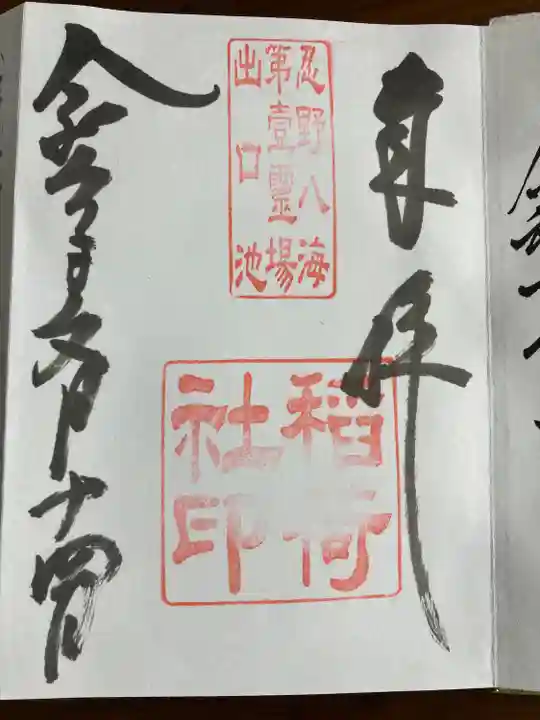 奉拝
忍野八海
第壹霊場
出口池
稲荷
社印
令和
月十四日